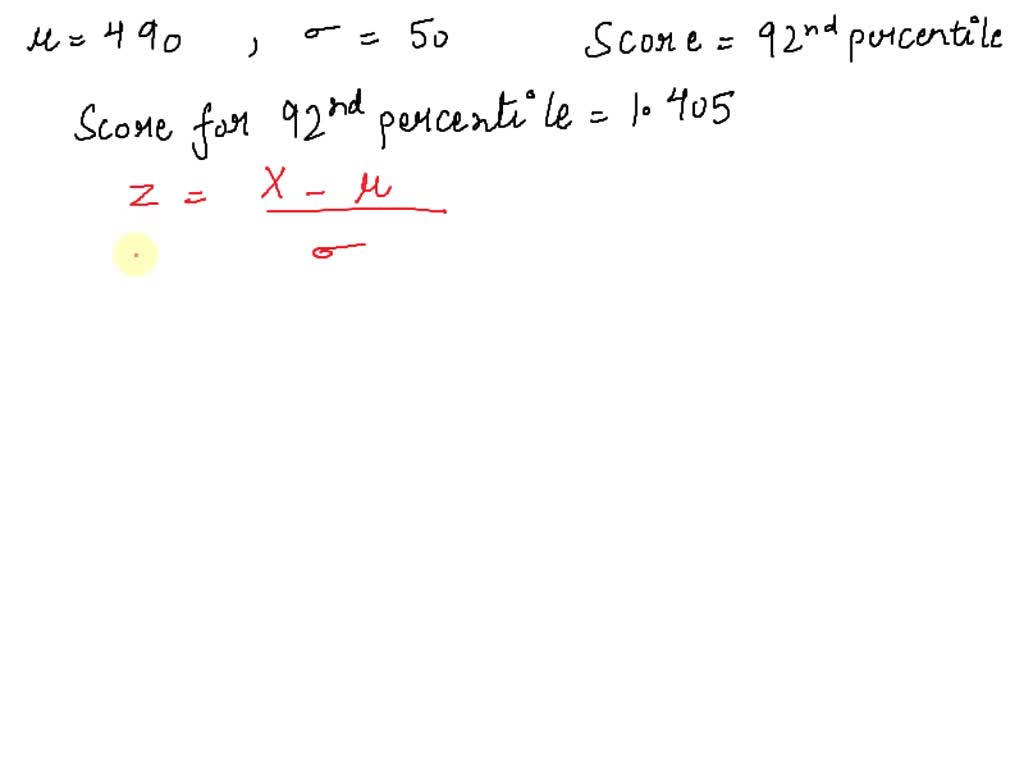 μ = 490 , σ = 50 Score = 92nd percentile
Score for 92nd percentile = 1.405
z = X - μ
σ